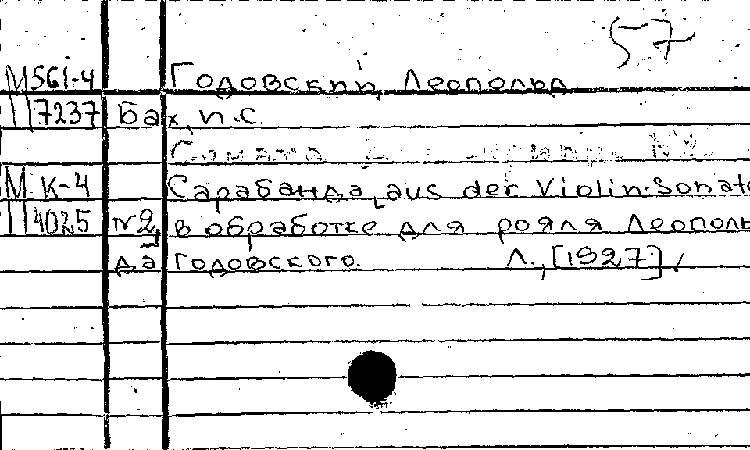 57
М 561-4 Годовский, Леопольд
П 7237 Бах, И.С.
Соната
М К-4 Сарабанда [aus der Violin-Sonate
П 4025 №2, в обработке для рояля Леополь
да Годовского. Л., [1927]